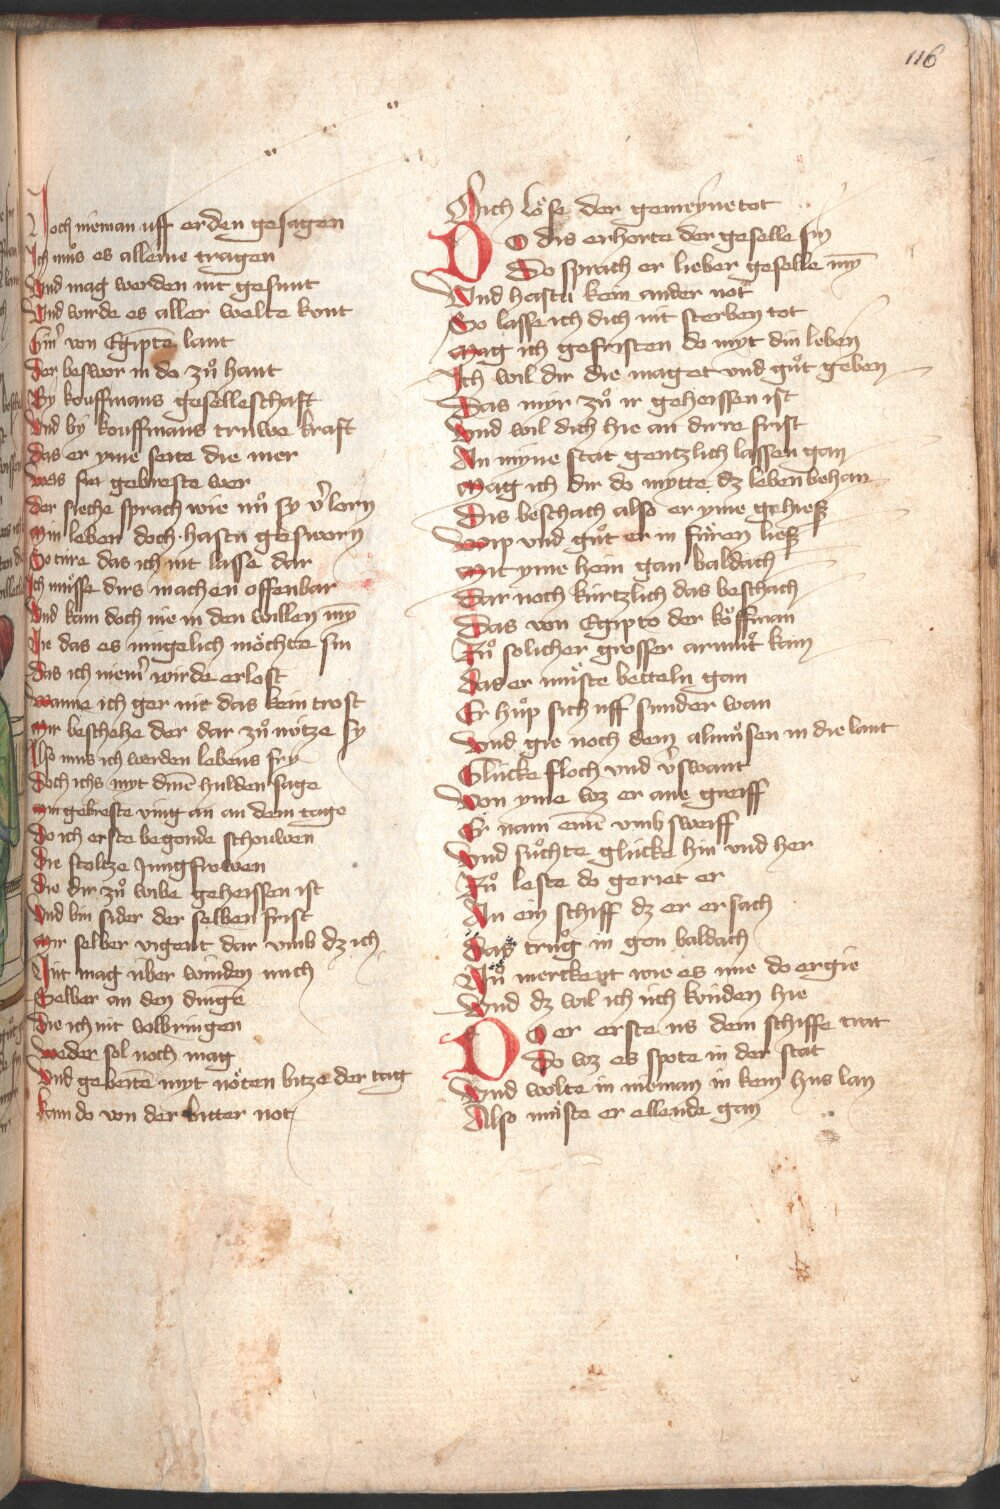 116
Noch nieman uff erden gesagen
Ich můs es alleine tragen
Und mag werden nit gesunt
Und wirde es aller welte kunt
Sin̄ von Egipte lant
Der beswor in do zů hant
By kouffmans geselleschaft
Und by kouffmans truwe kraft
Das er yme seite die mer
Was sin gebreste wer
Der sieche sprach wie nů sy v̓lorn
Min leben doch hastu gesworn
So ture das ich nit lasse dar
Ich müsse dirs machen offenbar
Und kam doch nie in den willen mȳ
Die das es mügelich möchte sin
Das ich iem̄ wirde erlost
Wanne ich ger nit das kein trost
Mir beschehe der dar zů nötze sy
Also mus ich werden lebens fry
Doch ichs myt dinē hulden sage
Min gebreste ving an an dem tage
Do ich erste begonde schouwen
Die stoltze Jungfrowen
Die dir zů wibe geheissen ist
Und bin sider der selben frist
Mir selber vigent dar umb dz ich
Nit mag über winden mich
Selber an den dinge
Die ich nit volbringen
Weder sol noch mag
Und gebeitē myt nöten bitze der tag
Kam do von der bitter not
Mich löse der gemeyne tot
DO dis erhorte der geselle sin
Do sprach er lieber geselle mȳ
Und hastu kein ander not
So lasse ich dich nit sterben tot
Mag ich gefristen do myt din leben
Ich wil dir die maget und gůt geben
Das myr zů ir geheissen ist
Und wil dich hie an dirre frist
An myne stat gentzlich lassen gan
Mag ich dir do mytte dz leben behan
Dis beschach also er yme gehiesz
Wip und gůt er in füren liesz
Mit yme hein gan baldach
Dar noch kürtzlich das beschach
Das von Egipto der köffman
Zů solicher grosser armůt kam
Das er müste betteln gan
Er hůp sich uff sunder wan
Und gie noch dem almůsen in die lant
Glücke floch und v̓swant
Von yme wz er ane greiff
Er nam einē umb sweiff
Und sůchte glücke hin und her
Zů leste do geriet er
An ein schiff dz er ersach
Das trůg in gon baldach
Nů merckent wie es ime do ergie
Und dz wil ich üch künden hie
DO er erste us dem schiffe trat
Do wz es spote in der stat
Und wolte in nieman in kein hus lan
Also müste er ellende gan